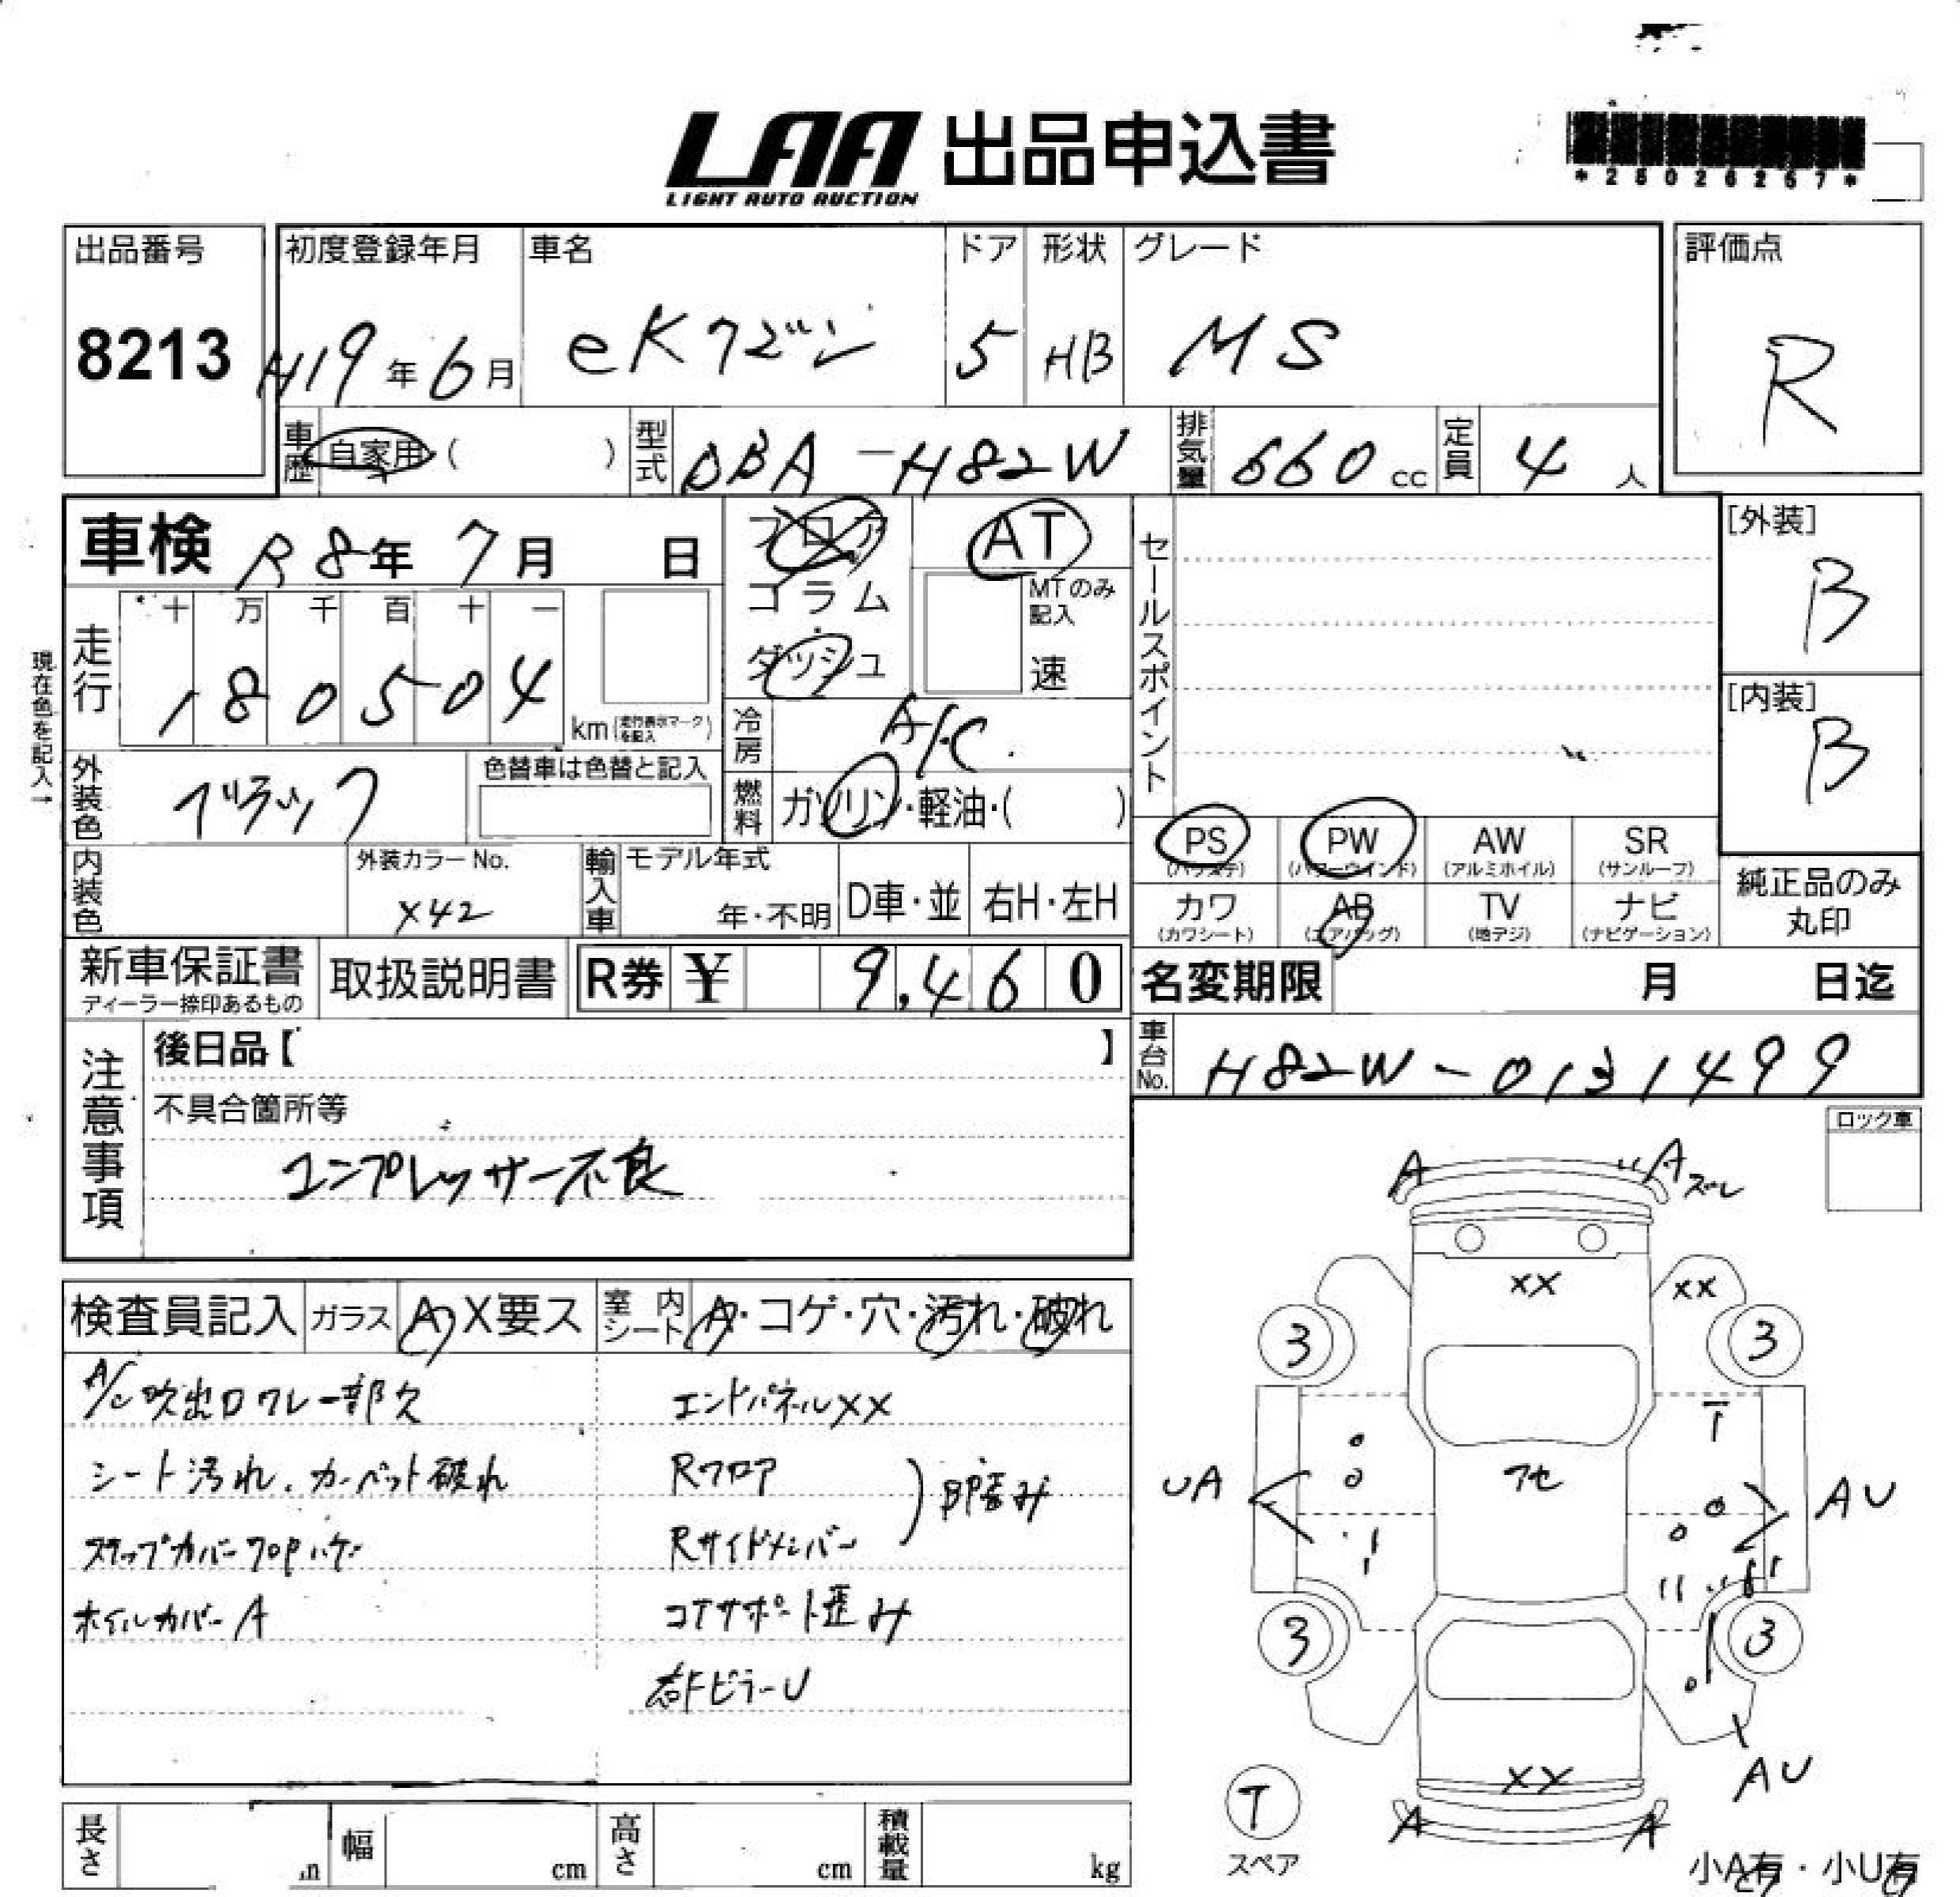 LAA 出品申込書
LIGHT AUTO AUCTION
*28026257*
出品番号
8213
初度登録年月
H19年6月
車名
eKワゴン
ドア
5
形状
HB
グレード
MS
評価点
R
車歴
自家用 ( )
型式
DBA-H82W
排気量
660 cc
定員
4 人
車検 R8年 7月 日
フロア
コラム
ダッシュ
AT
MTのみ記入
速
セールスポイント
[外装]
B
[内装]
B
走行
十 万 千 百 十 一
1 8 0 5 0 4
km (走行表示マークを記入)
現在色を記入→
冷房
A/C
燃料
ガソリン・軽油・( )
外装色
ブラック
色替車は色替と記入
内装色
外装カラーNo.
X42
輸入車
モデル年式
年・不明
D車・並
右H・左H
PS
(パワステ)
PW
(パワーウインド)
AW
(アルミホイル)
SR
(サンルーフ)
カワ
(カワシート)
AB
(エアバッグ)
TV
(地デジ)
ナビ
(ナビゲーション)
純正品のみ
丸印
新車保証書
ディーラー捺印あるもの
取扱説明書
R券 ¥ 9,460
名変期限 月 日迄
車台No.
H82W-0131499
注意事項
後日品【 】
不具合箇所等
コンプレッサー不良
ロック車
検査員記入
ガラス
A X要ス
室内シート
A・コゲ・穴・汚れ・破れ
A/C吹出口ワレ一部欠
シート汚れ、カーペット破れ
ステップカバーフロアハゲ
ホイルカバーA
エンドパネルXX
Rフロア
Rサイドメンバー
凹み
コアサポート歪み
右FピラーU
A
Aズレ
XX
XX
3
3
アセ
UA
AU
3
3
XX
AU
A
A
T
スペア
小A有・小U有
長さ
m
幅
cm
高さ
cm
積載量
kg